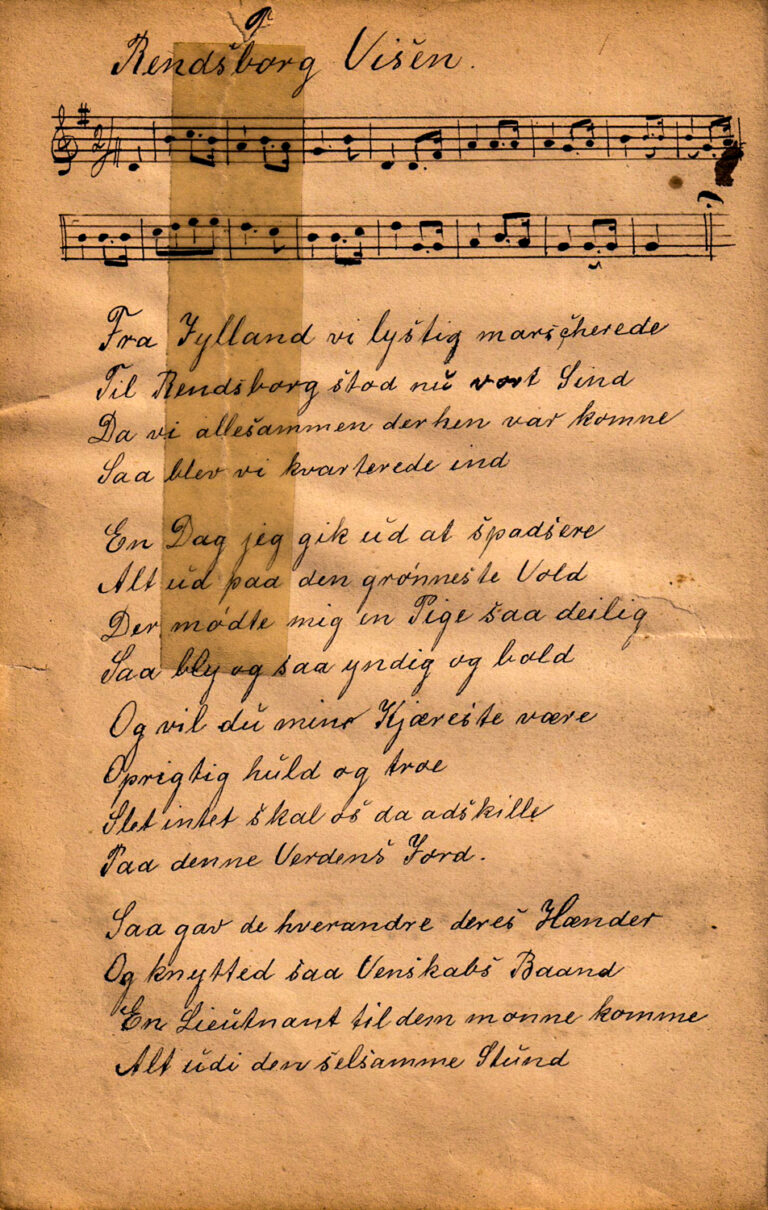 Rendsborg Visen.
2/4
Fra Jylland vi lystig marscherede
Til Rendsborg stod nu vort Sind
Da vi allesammen derhen var komne
Saa blev vi kvarterede ind
En Dag jeg gik ud at spadsere
Alt ud paa den grønneste Vold
Der mødte mig en Pige saa deilig
Saa bly og saa yndig og bold
Og vil du min Kjæreste være
Oprigtig huld og troe
Slet intet skal os da adskille
Paa denne Verdens Jord.
Saa gav de hverandre deres Hænder
Og knytted saa Venskabs Baand
En Lieutnant til dem monne komme
Alt udi den selsamme Stund